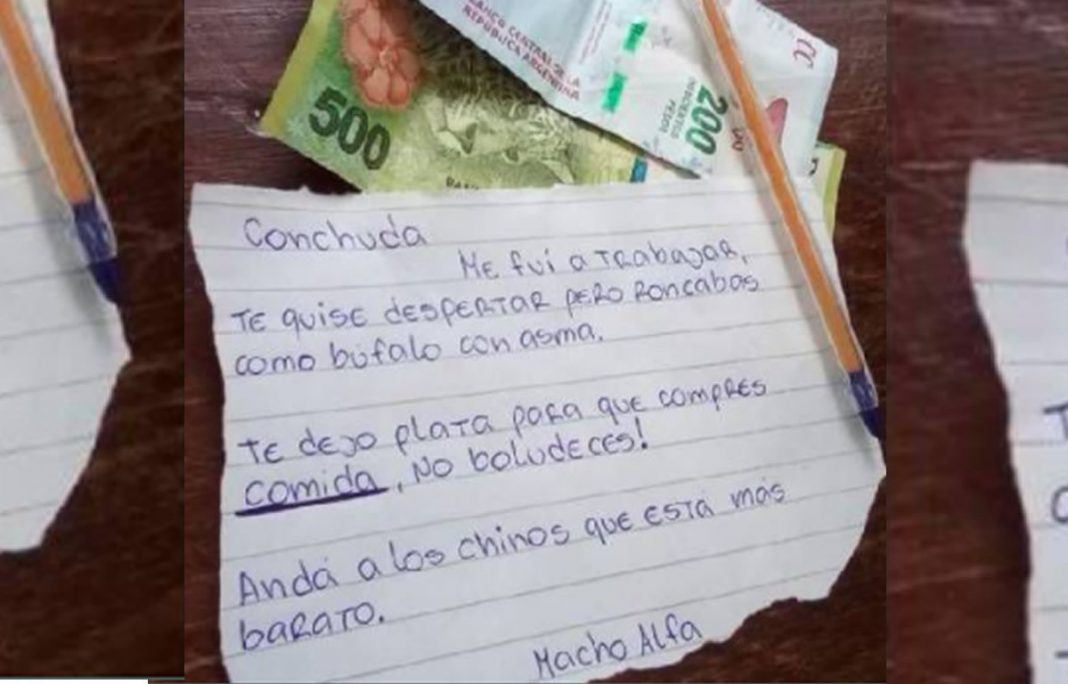 BANCO CENTRAL DE LA
REPÚBLICA ARGENTINA
500
200
DOSCIENTOS
PESOS
Conchuda
Me fui a trabajar,
te quise despertar pero roncabas
como bufalo con asma.
te dejo plata para que compres
comida, No boludeces!
Andá a los chinos que está más
barato.
Macho Alfa